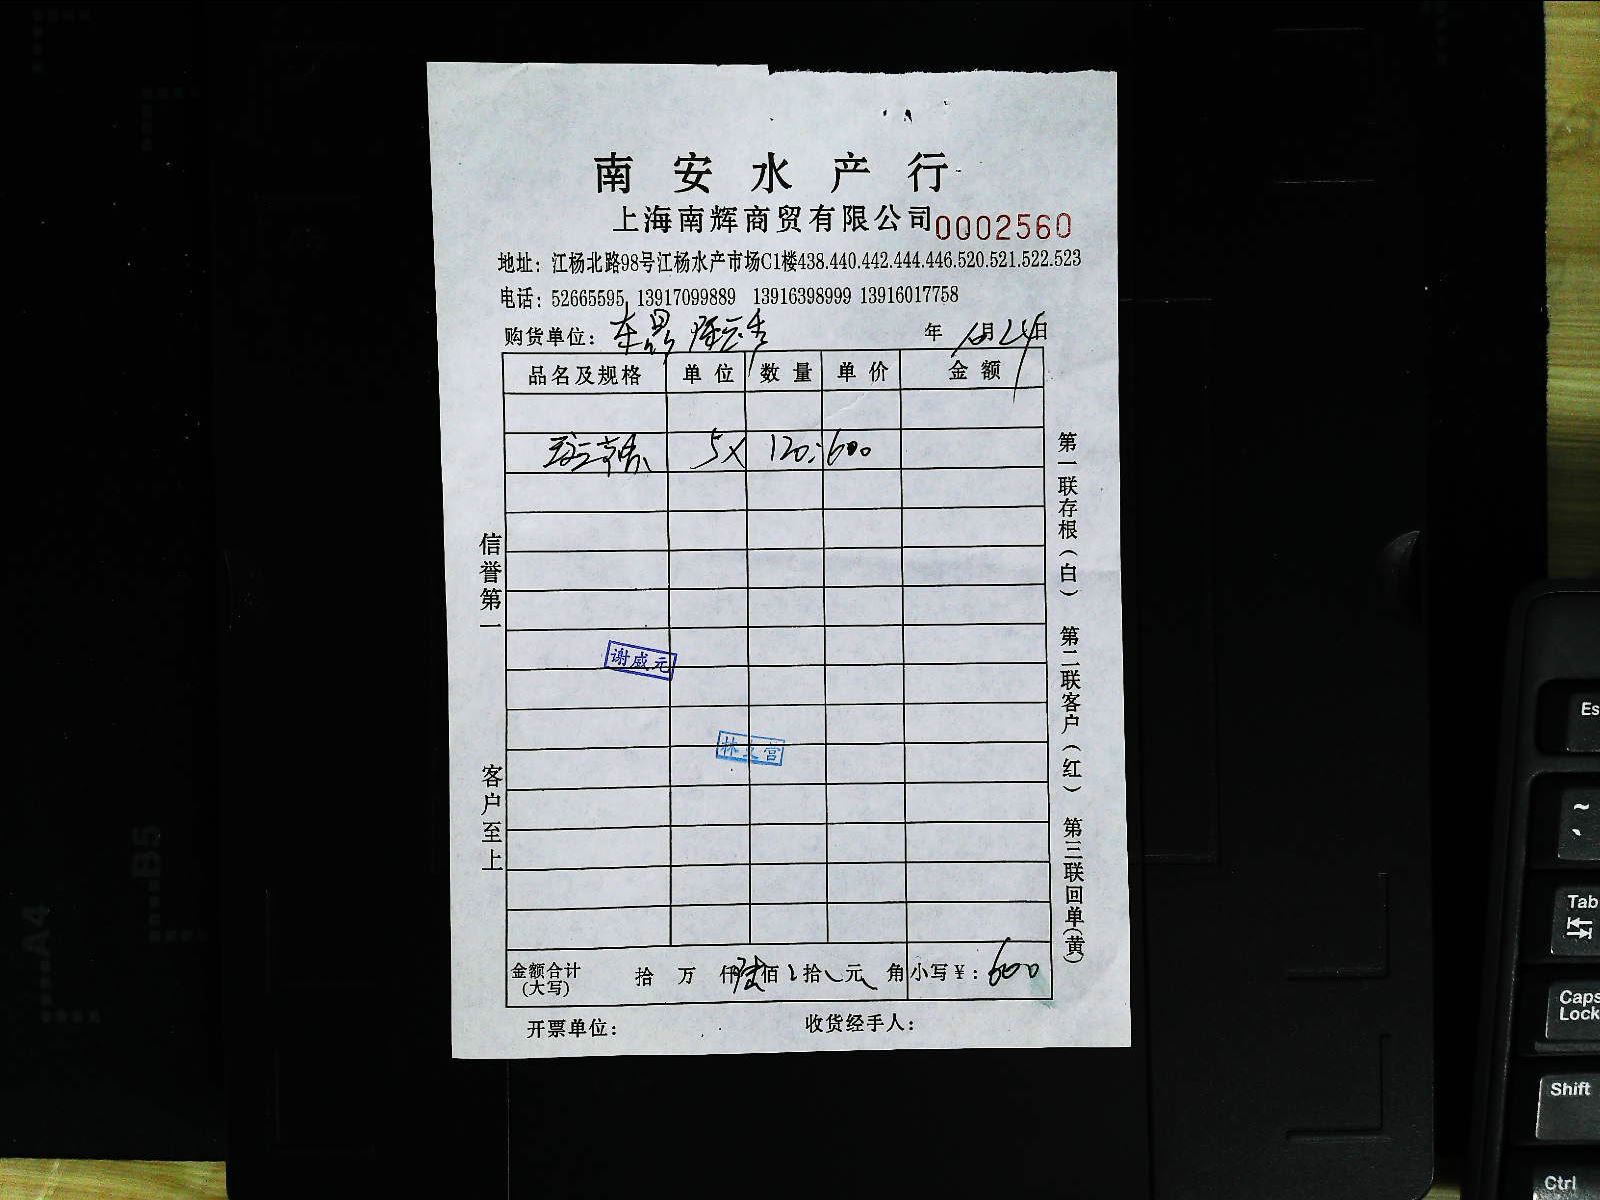 南安水产行
上海南辉商贸有限公司 0002560
地址：江杨北路98号江杨水产市场C1楼438.440.442.444.446.520.521.522.523
电话：52665595 13917099889 13916398999 13916017758
购货单位： 年 月24日
品名及规格 单位 数量 单价 金额
5× 120=600
信誉第一
客户至上
谢威元
林 营
第一联存根（白） 第二联客户（红） 第三联回单（黄）
金额合计（大写） 拾 万 仟陆佰 拾 元 角 小写￥：600
开票单位： 收货经手人：
A4
B5
Es
~
Tab
Caps Lock
Shift
Ctrl